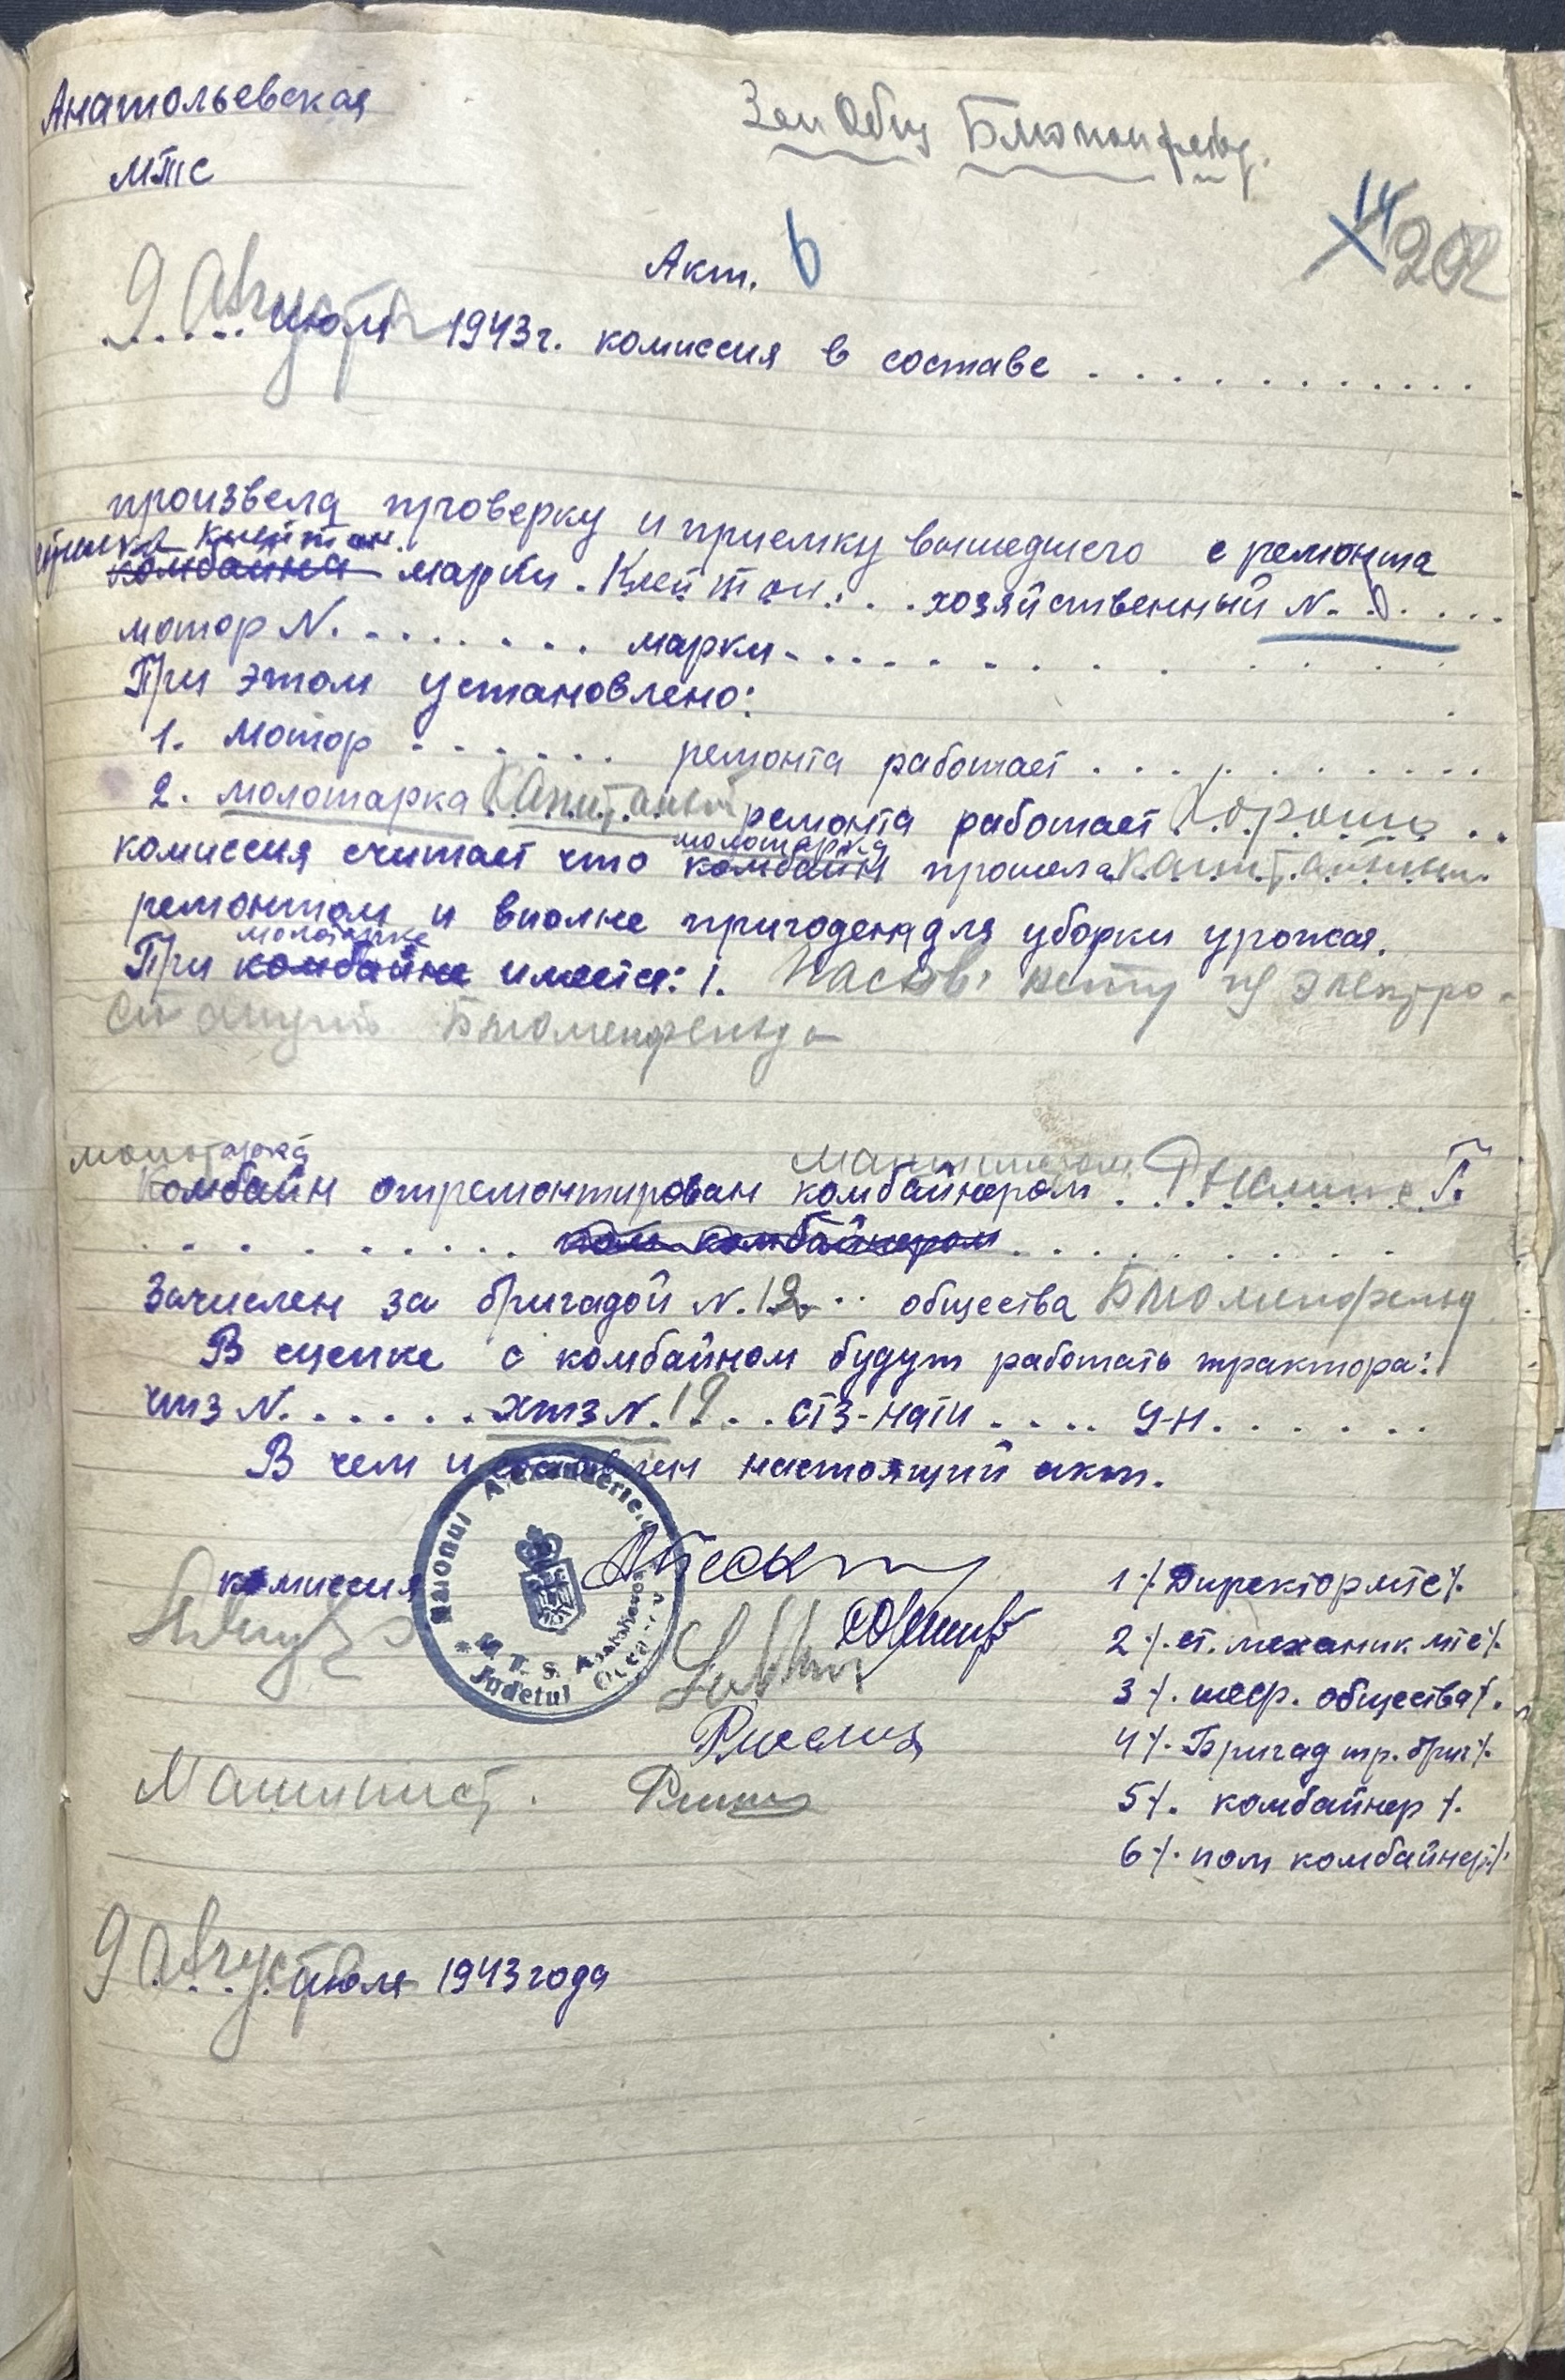 Анатольевская
МТС
Зем Общ Блюменфельд.
14
202
Акт. 6
9 Августа июля 1943 г. комиссия в составе . . . . . . . . . . . .
произвела проверку и приемку вышедшего с ремонта
Клейтон.
комбайна марки . Клейтон . . . хозяйственный N. . . . . .
мотор N. . . . . . . . марки . . . . . . . . . . . .
При этом установлено:
1. Мотор . . . . . . ремонта работает . . . . . . . . . .
2. молотарка Капитальн ремонта работает Хорошо . .
молотарка
комиссия считает что комбайн прошела капитальным
ремонтом и вполне пригодена для уборки урожая.
молотарке
При комбайне имеется: 1. Пасов нету из электро-
станции Блюменфельда
молотарка машинистом
Комбайн отремонтирован комбайнером . Г.
. . . . . . . . . . пом комбайнером . . . . . . . . . .
Зачислен за бригадой N. 12 . . общества Блюменфельд
В сцепке с комбайном будут работать трактора:
чтз N. . . . . . хтз N. 19 . . СТЗ-нати . . . . У-н. . . . . .
В чем и составлен настоящий акт.
комиссия
1 ٪ Директор мтс ٪
2 ٪. ст. механик мтс ٪
3 ٪. шеф. общества ٪.
4 ٪. Бригад тр. бриг ٪.
5 ٪. комбайнер ٪.
6 ٪. пом комбайнер ٪.
Raionul
M. T. S.
Judetul
Машинист.
9 Августа июля 1943 года